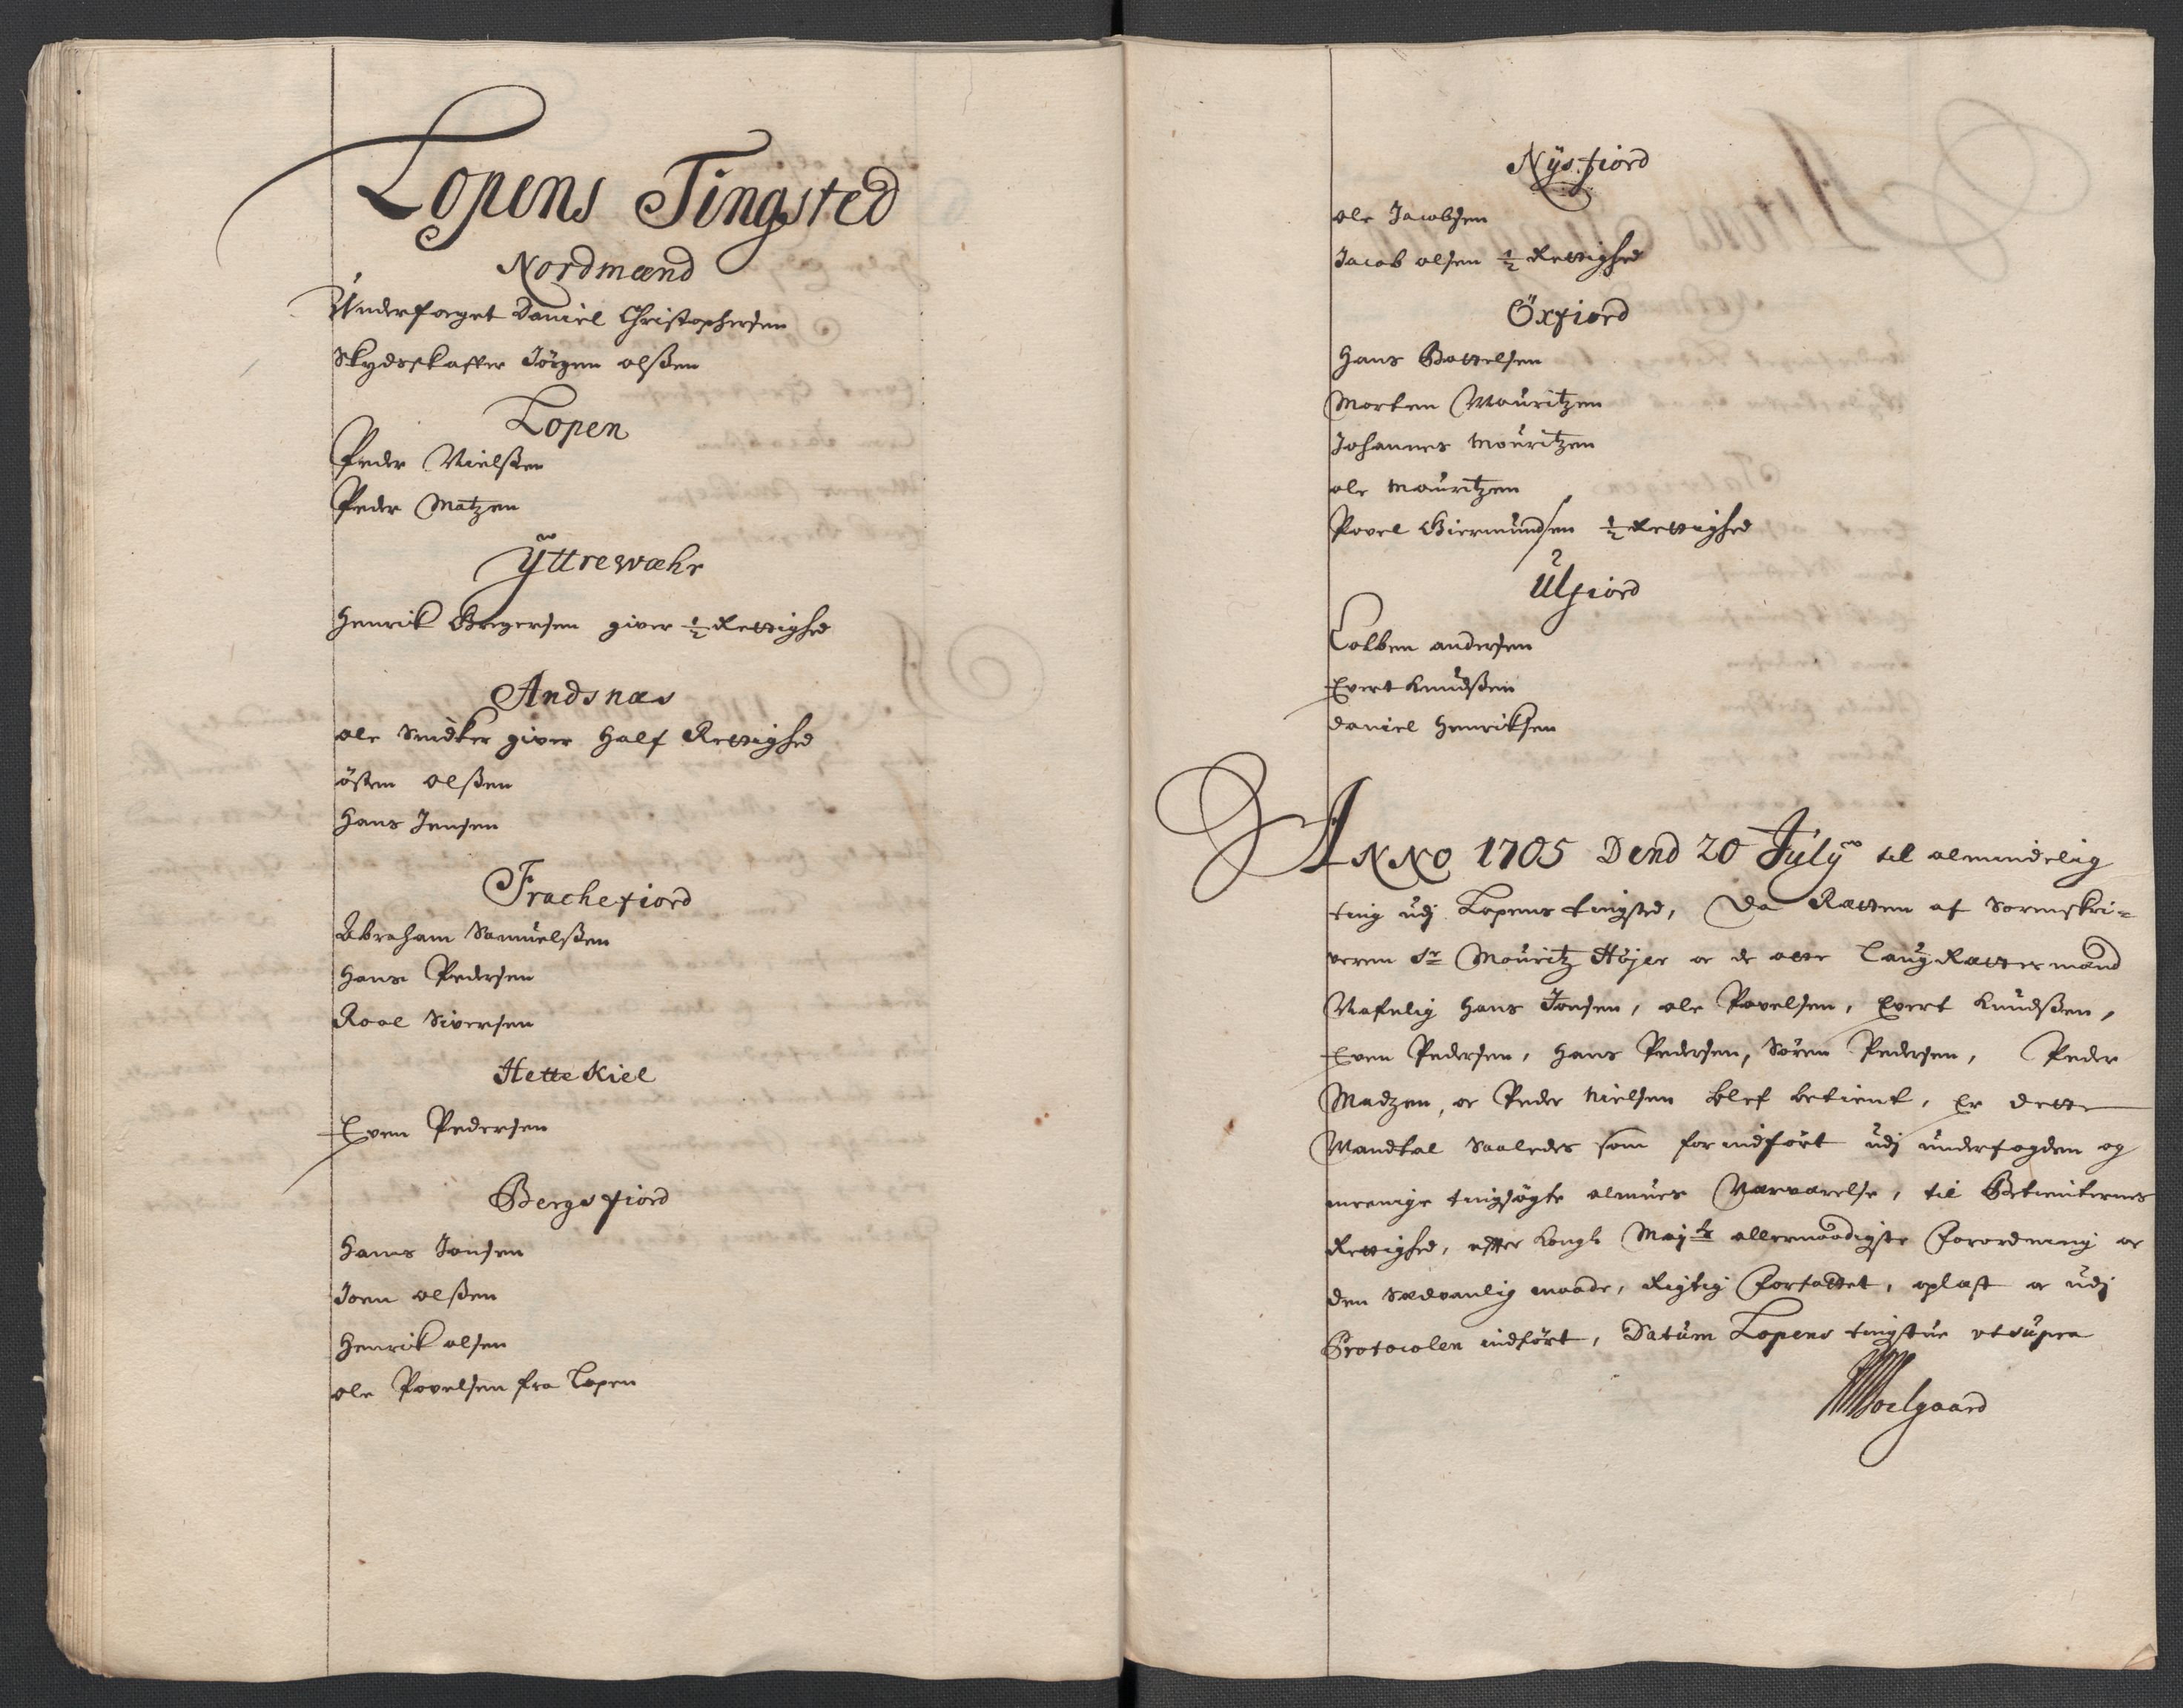 Lopens Tingsted
Nordmænd
Underfoget Daniel Christophersen
Skydsskaffer Jörgen olßen
Lopen
Peder Nielßen
Peder Matzen
Ÿttrewæhr
Henrik Gregersen giver ½ Rettighed
Andsnæs
ole Snidker giver Half Rettighed
östen olßen
Hans Jensen
Frachefiord
Abraham Samuelßen
Hans Pedersen
Roal Siversen
Hettekiel
Even Pedersen
Bergsfiord
Hans Jonsen
Joen olßen
Henrik olsen
ole Povelsen fra Lopen
Nÿsfiord
ole Jacobsen
Jacob olsen ½ Rettighed
Öxfiord
Hans Bottelsen
Morten Mouritzen
Johannes Mouritzen
ole Mouritzen
Povel Giermundsen ½ Rettighed
Ulfiord
Colben andersen
Evert Knudßen
Daniel Henriksen
ANNO 1705 Dend 20 Julÿ til almindelig
ting udj Lopens tingsted, Da Retten af Sorenskri-
veren Sr Mouritz Höjer oc de otte Laug Rettesmænd
Nafnlig Hans Jonsen, ole Povelsen, Evert Knudßen,
Even Pedersen, Hans Pedersen, Sören Pedersen, Peder
Madzen, oc Peder Nielsen blef betient, Er dette
Mandtal Saaledes som forindfört udj underfogden og
menige tingsögte almues Nærværelse, til Betienternes
Rettighed, efter Kongl Mayts allernaadigste Forordning oc
den Sædvanlig maade, Rigtig Forfattet, oplæst oc udj
Protocolen indfört, Datum Lopens tingstue ut supra
Soelgaard